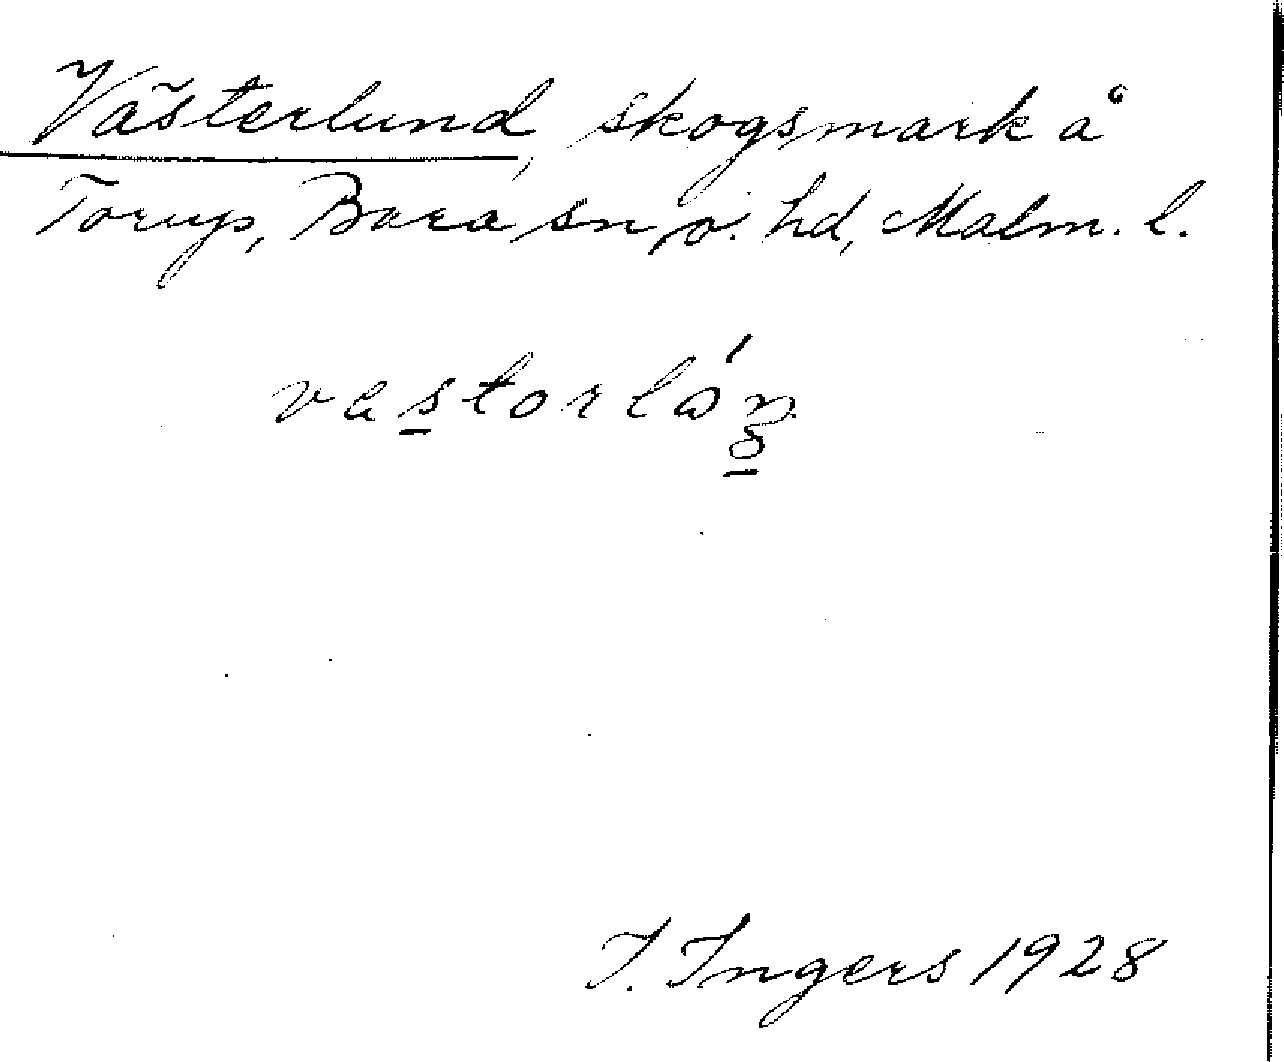 Västerlund, skogsmark å
Torup, Bara sn o. hd, Malm. l.
I. Ingers 1928